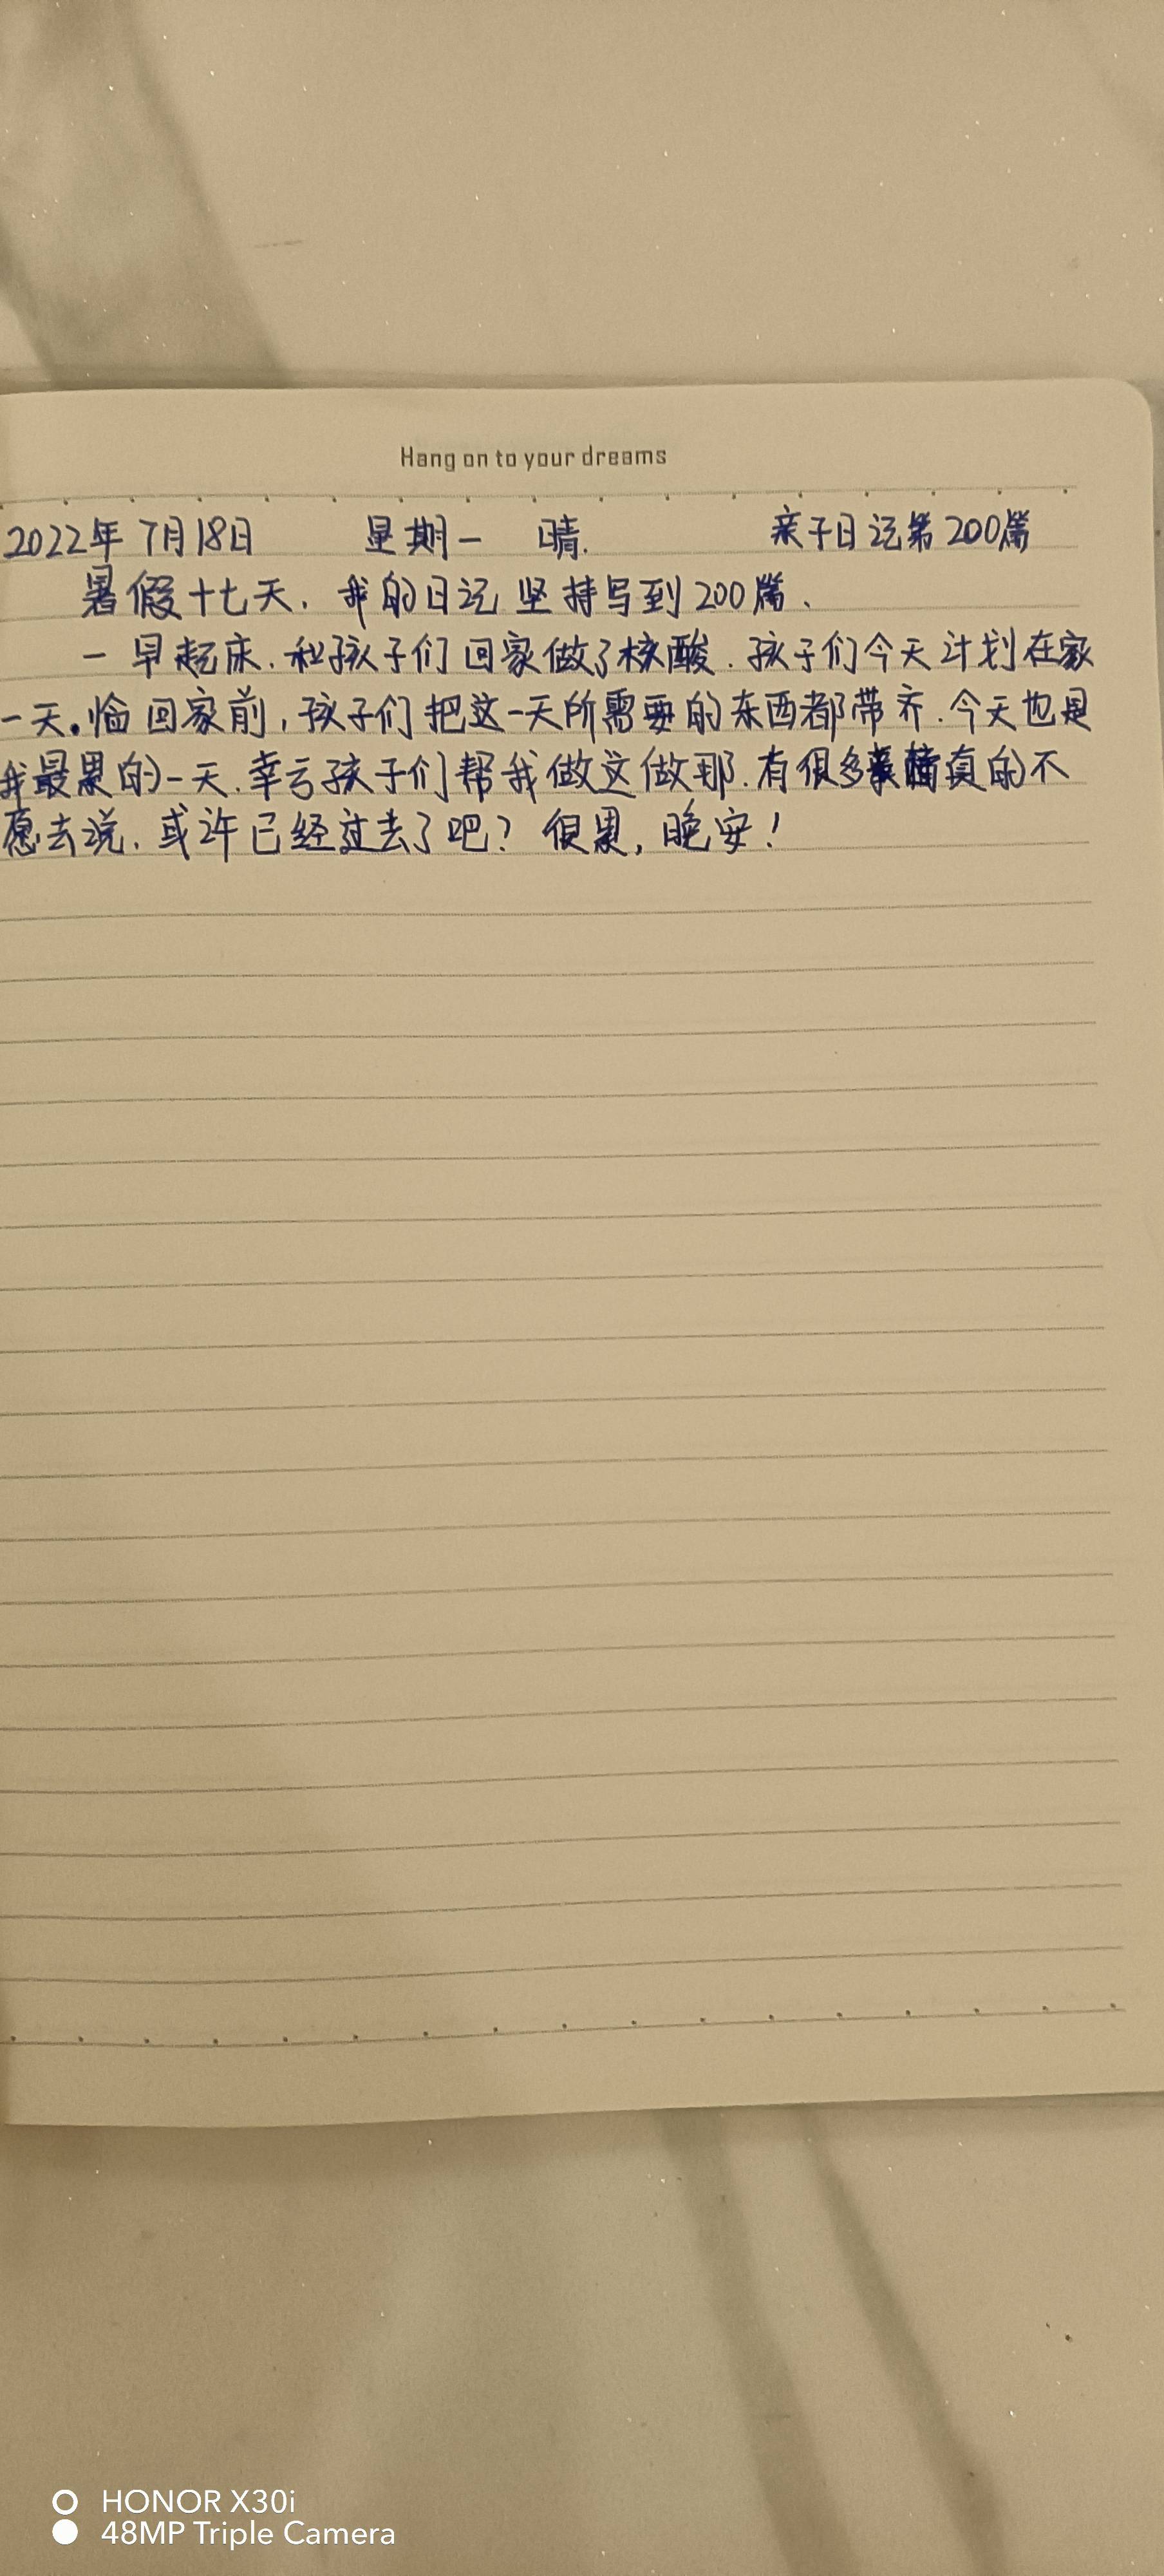 Hang on to your dreams
2022年7月18日 星期一 晴. 亲子日记第200篇
暑假十七天, 我的日记坚持写到200篇、
一早起床, 和孩子们回家做了核酸. 孩子们今天计划在家
一天。临回家前, 孩子们把这一天所需要的东西都带齐. 今天也是
我最累的一天. 幸亏孩子们帮我做这做那. 有很多真的不
愿去说, 或许已经过去了吧? 很累, 晚安!
HONOR X30i
48MP Triple Camera